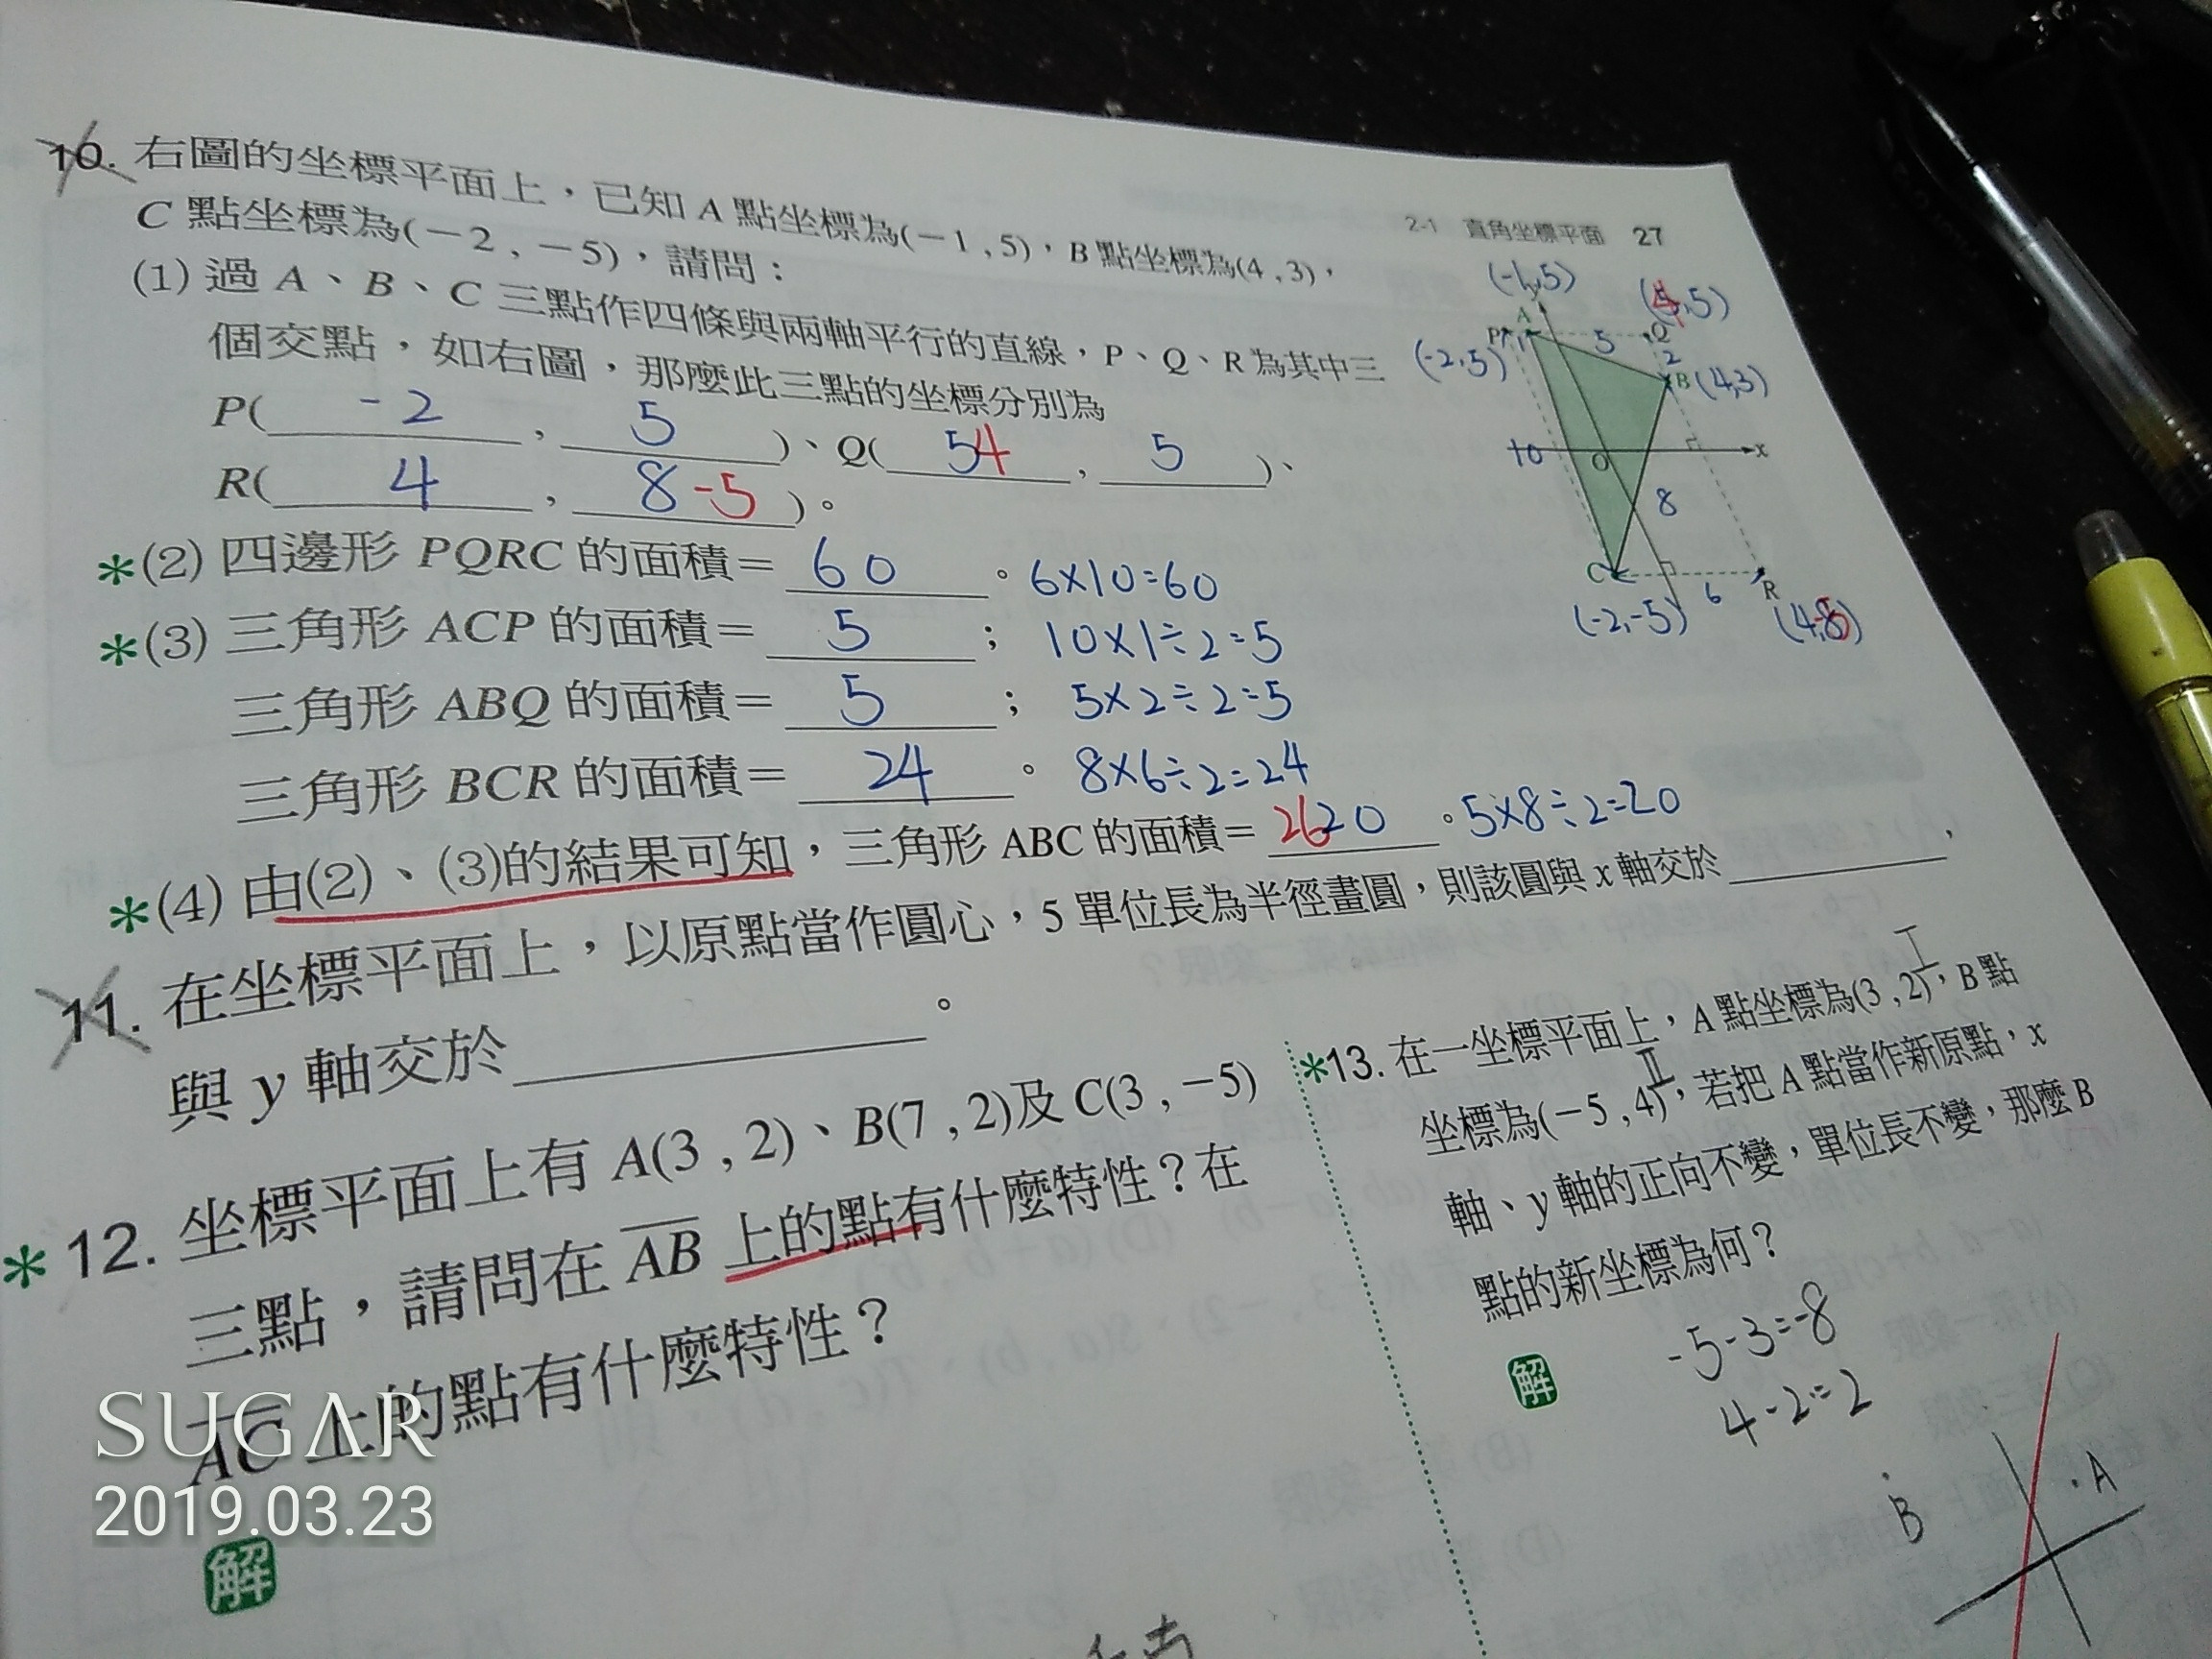 2-1 直角坐標平面 27
10. 右圖的坐標平面上，已知 A 點坐標為(－1 , 5)，B 點坐標為(4 , 3)，
C 點坐標為(－2 , －5)，請問：
(1) 過 A、B、C 三點作四條與兩軸平行的直線，P、Q、R 為其中三
個交點，如右圖，那麼此三點的坐標分別為
P( -2 , 5 )、Q( 54 , 5 )、
R( 4 , 8 -5 )。
*(2) 四邊形 PQRC 的面積＝ 60 。 6×10=60
*(3) 三角形 ACP 的面積＝ 5 ； 10×1÷2=5
三角形 ABQ 的面積＝ 5 ； 5×2÷2=5
三角形 BCR 的面積＝ 24 。 8×6÷2=24
*(4) 由(2)、(3)的結果可知，三角形 ABC 的面積＝ 26 20 。 5×8÷2=20
(-1,5)
(4,5)
y
A
P 1
Q
5
(-2,5)
2
B (4,3)
10
O
x
8
C
6
R
(-2,-5)
11. 在坐標平面上，以原點當作圓心，5 單位長為半徑畫圓，則該圓與 x 軸交於 ，
與 y 軸交於 。
*12. 坐標平面上有 A(3 , 2)、B(7 , 2)及 C(3 , －5)
三點，請問在 AB 上的點有什麼特性？在
AC 上的點有什麼特性？
解
*13. 在一坐標平面上，A 點坐標為(3 , 2)，B 點
I
坐標為(－5 , 4)，若把 A 點當作新原點，x
II
軸、y 軸的正向不變，單位長不變，那麼 B
點的新坐標為何？
解
-5-3=-8
4-2=2
B
A
SUGAR
2019.03.23